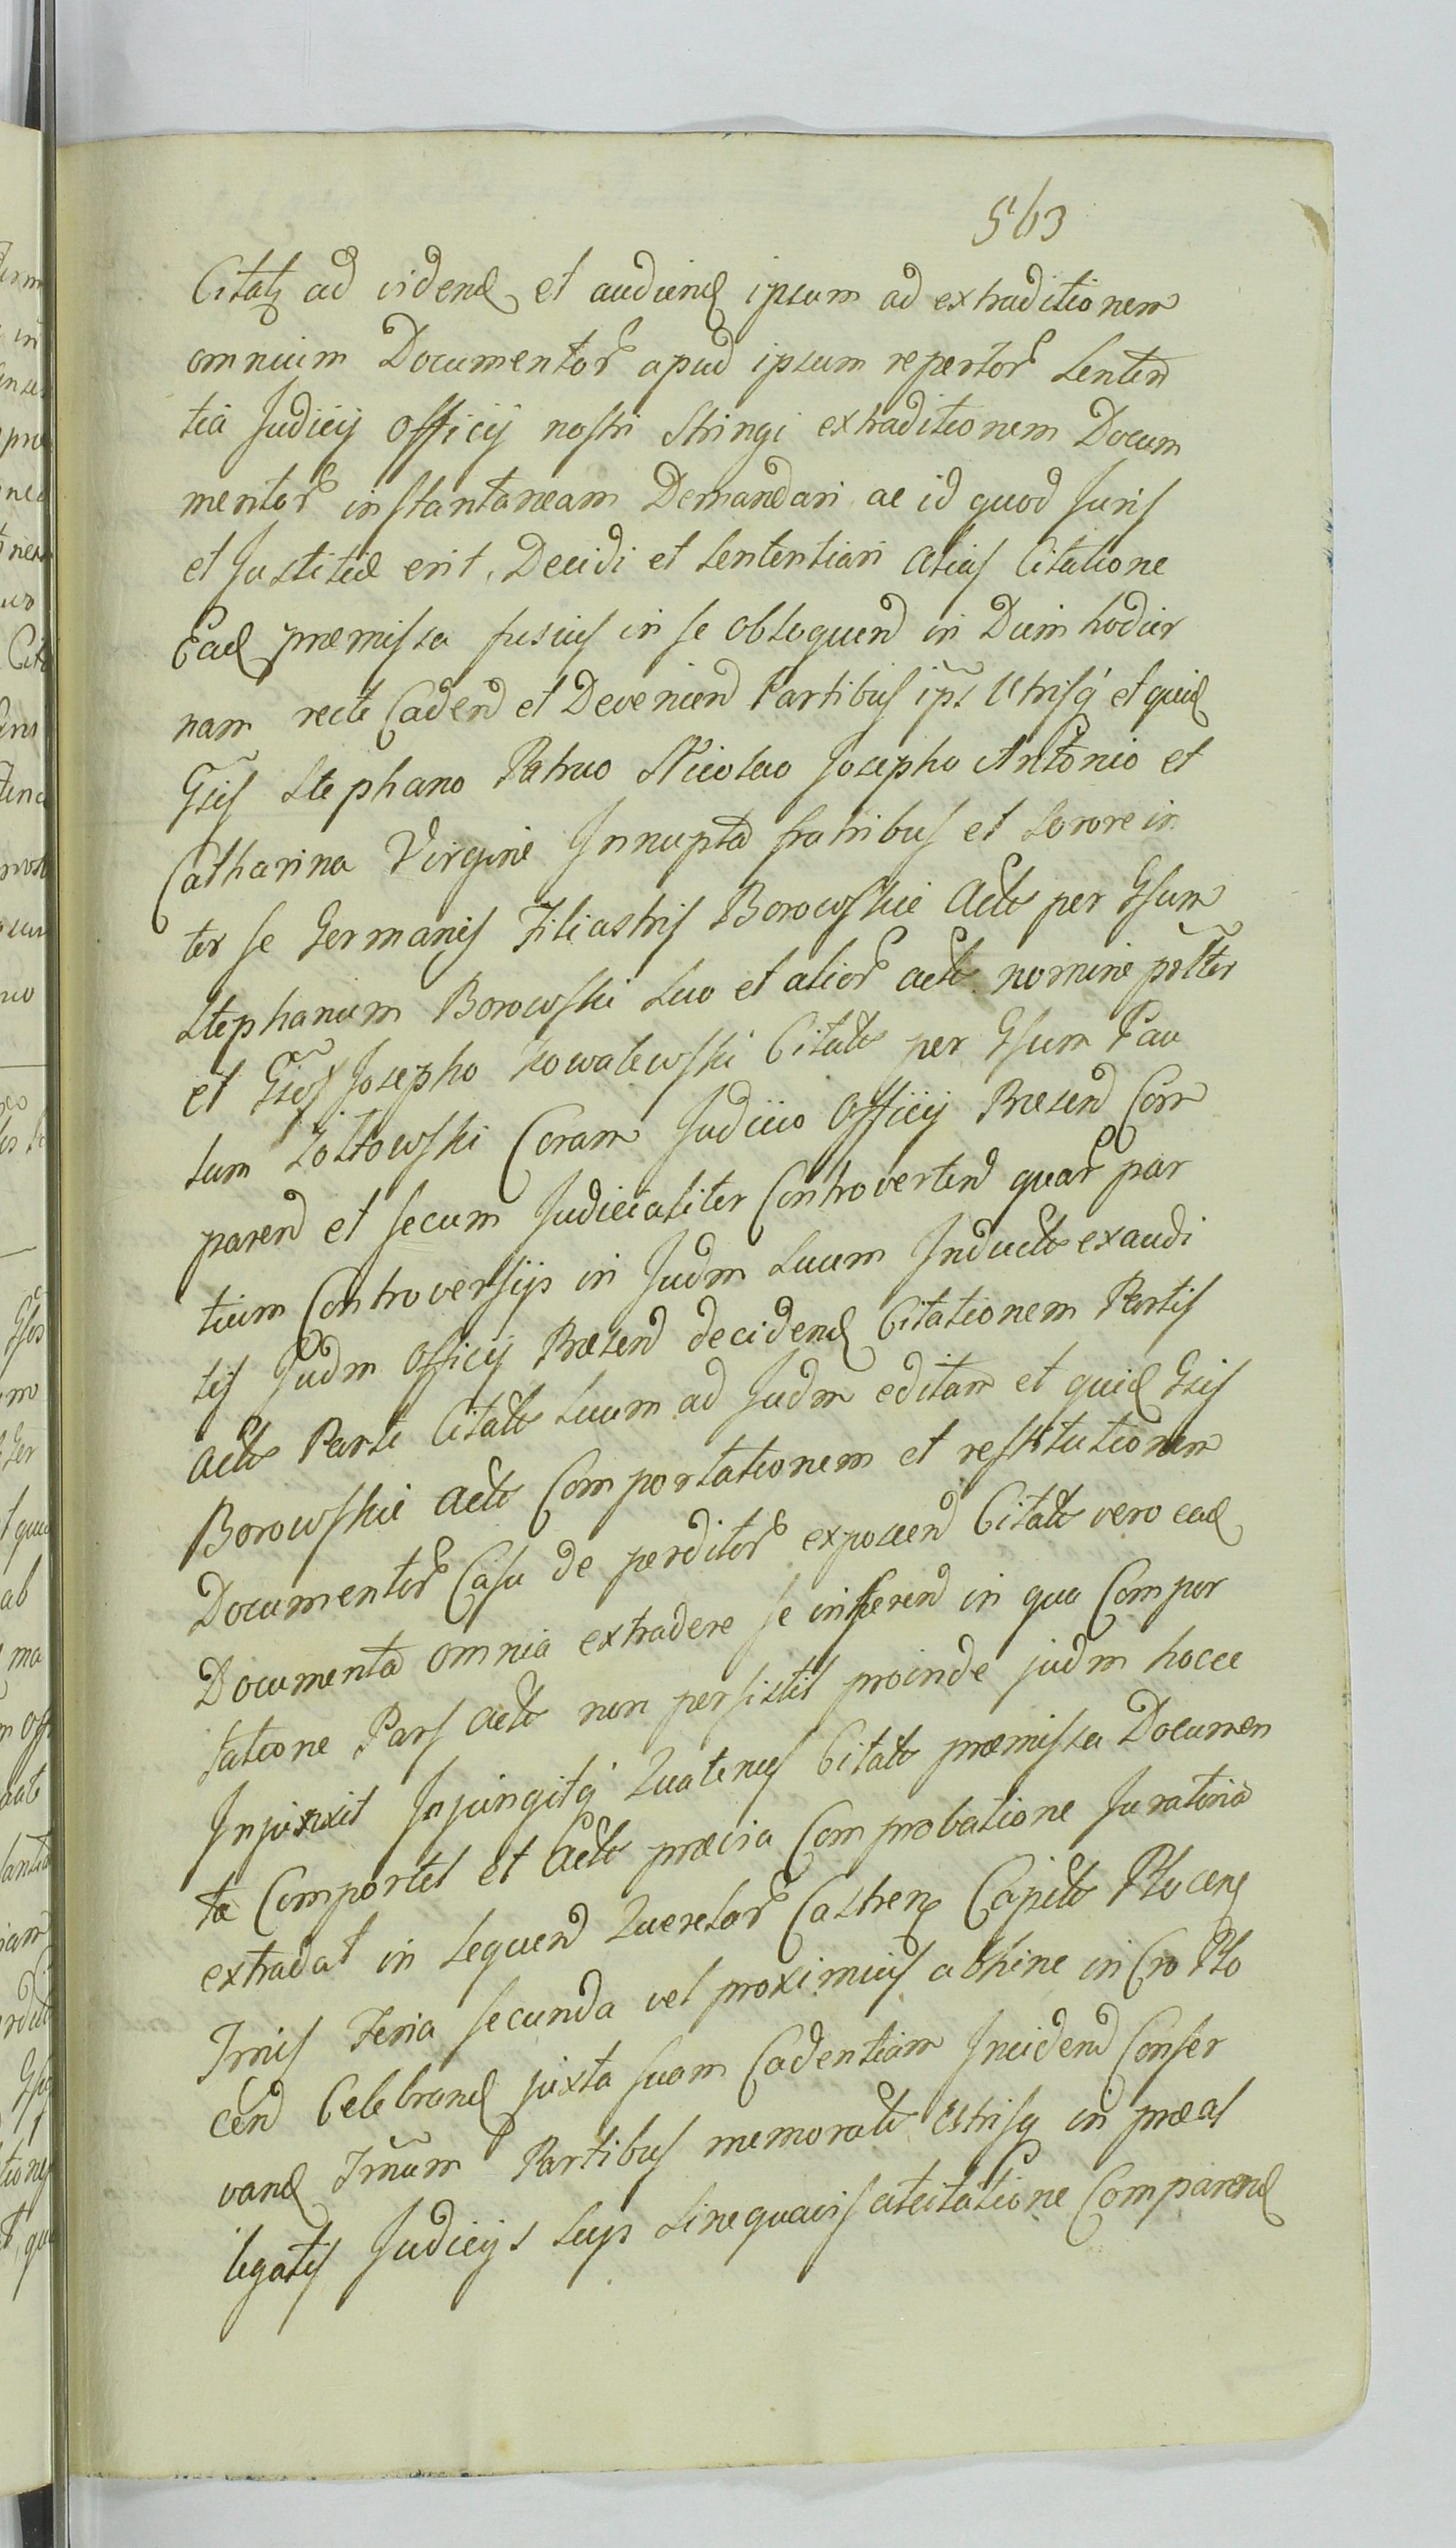 563
Citatq ad vidend et audiend ipsum ad extraditionem
omnium Documentor apud ipsum repertor senten
tia Judicij Officij nostri Stringi extraditionem Docum
mentor instantaneam Demandari ac id quod Juris
et Justitiæ erit. Decidi et sententiari alias Citatione
Ead præmissa fusius in se obloquend in Diem hodier
nam recte Cadend et Devenien Partibus ips Utrisq et quid
Gsis Stephano Patruo Nicolao Josepho Antonio et
Catharina Virgine Innupta fratribus et sorore in
ter se Germanis Filiastris Borowskie Acto per Gsum
Stephanum Borowski suo et alior acto nomine psltter
et Gsos Josepho Kowalewski Citato per Gsum Pau
lum Zoltowski Coram Judicio Officij Præsend Com
parend et secum Judicialiter Controvertend quar par
tium Controversijs in Judm suum Inducto exaudi
tis Judm Officij Præsend decidend Citationem Partis
Acto Parte Citato suum ad Judm editam et quid Gsis
Borowskie Acto Comportationem et restitutionem
Documentor Casu de perditor exposcend Citato vero ead
Documenta omnia extradere se inferend in quo Compor
tatione Pars Acto non persistit proinde judm hocce
Injunxit Injungitq Quatenus Citato præmissa Documen
ta Comportet et Acto prævia Comprobatione Juratoria
extradat in sequend Querelar Castren Capitt Plocen
Trnis Feria secunda vel proximius abhinc in Cro Plo
cen Celebrand juxta suam Cadentiam Incidend Conser
vand Trnum Partibus memorato Utrisq in præal
legatis Judicijs suis sine quavis aticitatione Comparend